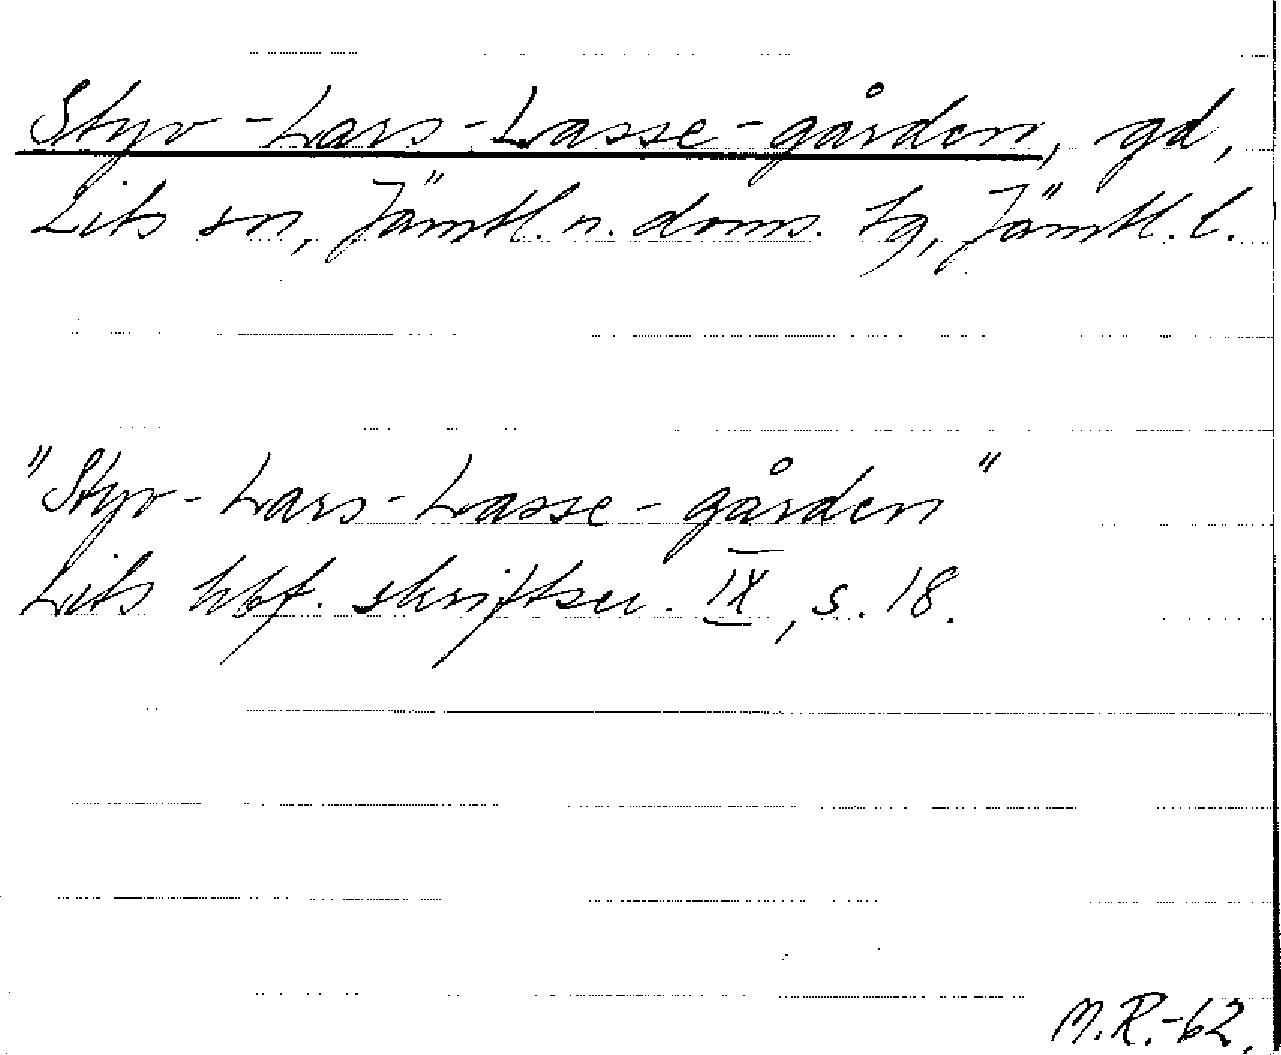 Styv-Lars-Lasse-gården, gd,
Lits sn, Jämtl. n. doms. tg, Jämtl. l.
"Styv-Lars-Lasse-gården"
Lits hbf. skriftser. IX, s. 18.
M.R.-62.